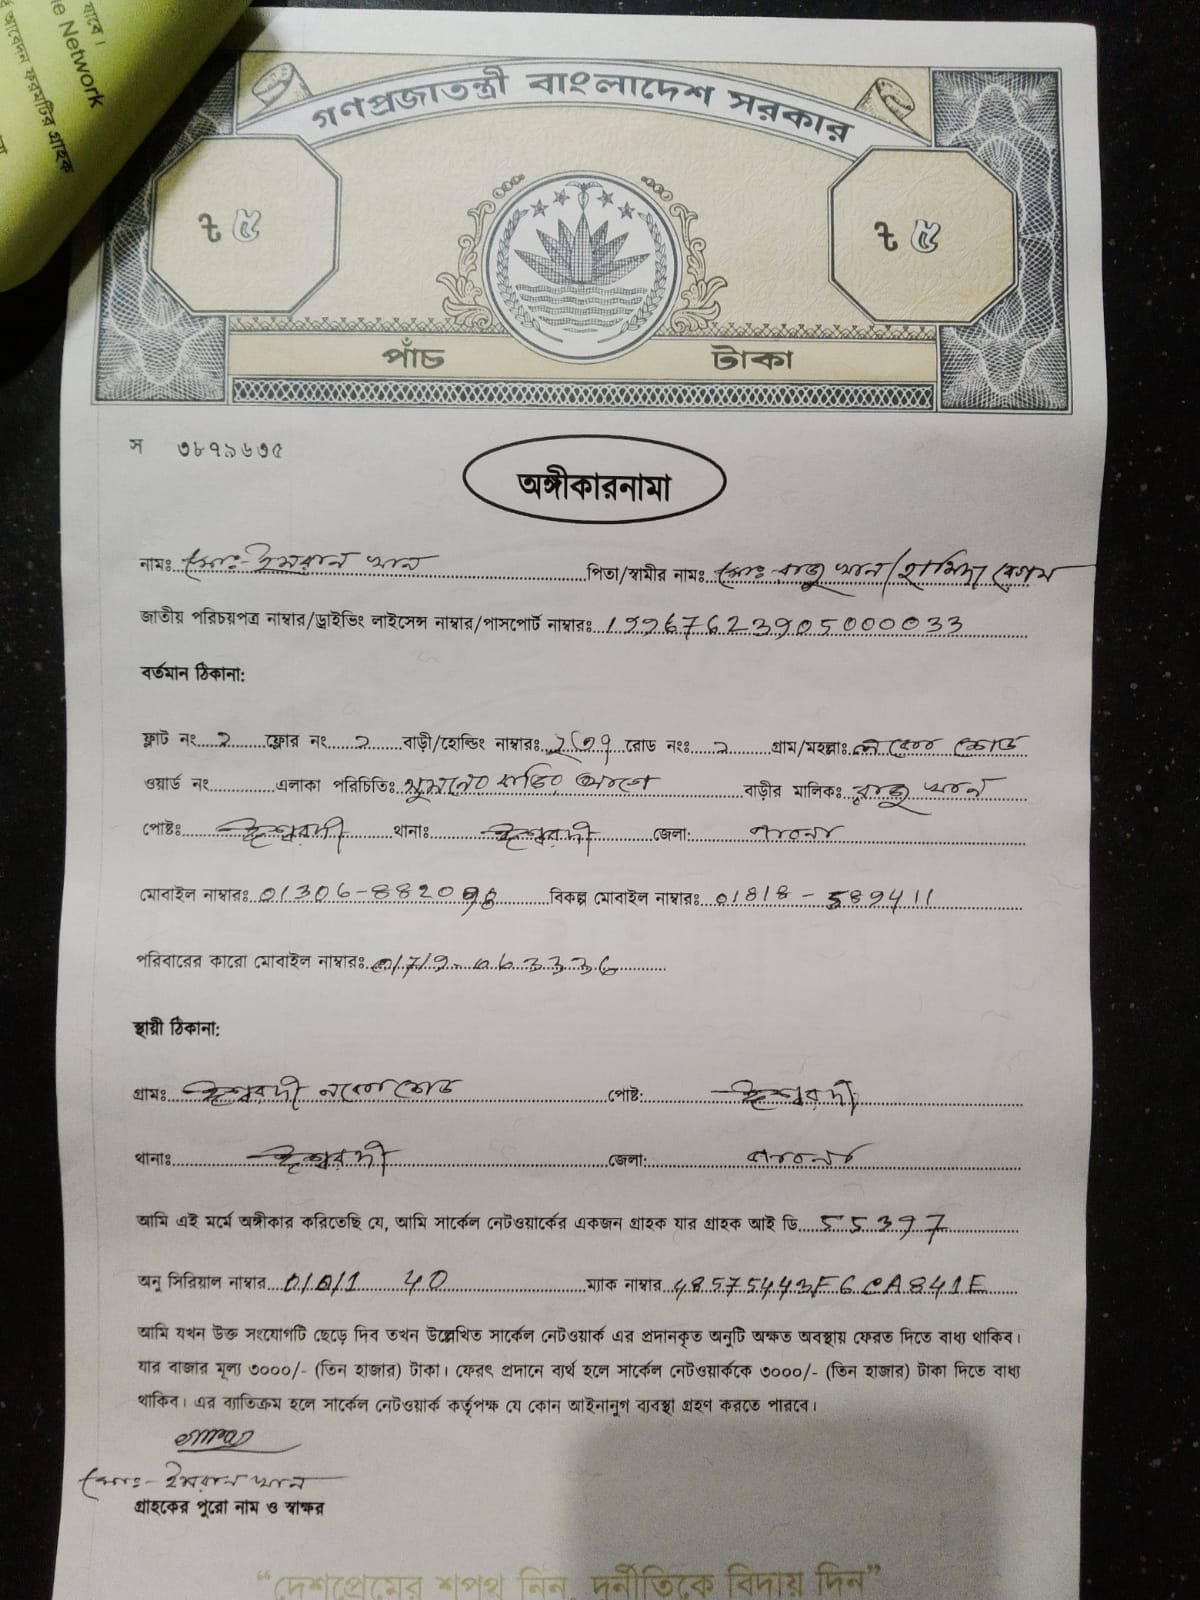 যাবে।
ne Network
আবেদন ফরমটির গ্রাহক
গণপ্রজাতন্ত্রী বাংলাদেশ সরকার
৳ ৫ ৳ ৫
পাঁচ টাকা
স ৩৮৭৯৬৩৫
অঙ্গীকারনামা
নামঃ মোঃ- ইমরান খান পিতা/স্বামীর নামঃ মোঃ রাজু খান/হামিদা বেগম
জাতীয় পরিচয়পত্র নাম্বার/ড্রাইভিং লাইসেন্স নাম্বার/পাসপোর্ট নাম্বারঃ 19967623905000033
বর্তমান ঠিকানা:
ফ্লাট নং ২ ফ্লোর নং ২ বাড়ী/হোল্ডিং নাম্বারঃ রোড নংঃ ২ গ্রাম/মহল্লাঃ রোড
ওয়ার্ড নং এলাকা পরিচিতিঃ বাড়ির বাড়ীর মালিকঃ রাজু খান
পোষ্টঃ ঈশ্বরদী থানাঃ ঈশ্বরদী জেলা: পাবনা
মোবাইল নাম্বারঃ 01306-8820 বিকল্প মোবাইল নাম্বারঃ 01818-589411
পরিবারের কারো মোবাইল নাম্বারঃ
স্থায়ী ঠিকানা:
গ্রামঃ ঈশ্বরদী রোড পোষ্ট: ঈশ্বরদী
থানাঃ ঈশ্বরদী জেলা: পাবনা
আমি এই মর্মে অঙ্গীকার করিতেছি যে, আমি সার্কেল নেটওয়ার্কের একজন গ্রাহক যার গ্রাহক আই ডি 55397
অনু সিরিয়াল নাম্বার 0/0/1 40 ম্যাক নাম্বার 48575443F6CA841E
আমি যখন উক্ত সংযোগটি ছেড়ে দিব তখন উল্লেখিত সার্কেল নেটওয়ার্ক এর প্রদানকৃত অনুটি অক্ষত অবস্থায় ফেরত দিতে বাধ্য থাকিব।
যার বাজার মূল্য ৩০০০/- (তিন হাজার) টাকা। ফেরৎ প্রদানে ব্যর্থ হলে সার্কেল নেটওয়ার্ককে ৩০০০/- (তিন হাজার) টাকা দিতে বাধ্য
থাকিব। এর ব্যাতিক্রম হলে সার্কেল নেটওয়ার্ক কর্তৃপক্ষ যে কোন আইনানুগ ব্যবস্থা গ্রহণ করতে পারবে।
মোঃ- ইমরান খান
গ্রাহকের পুরো নাম ও স্বাক্ষর
“দেশপ্রেমের শপথ নিন, দুর্নীতিকে বিদায় দিন”